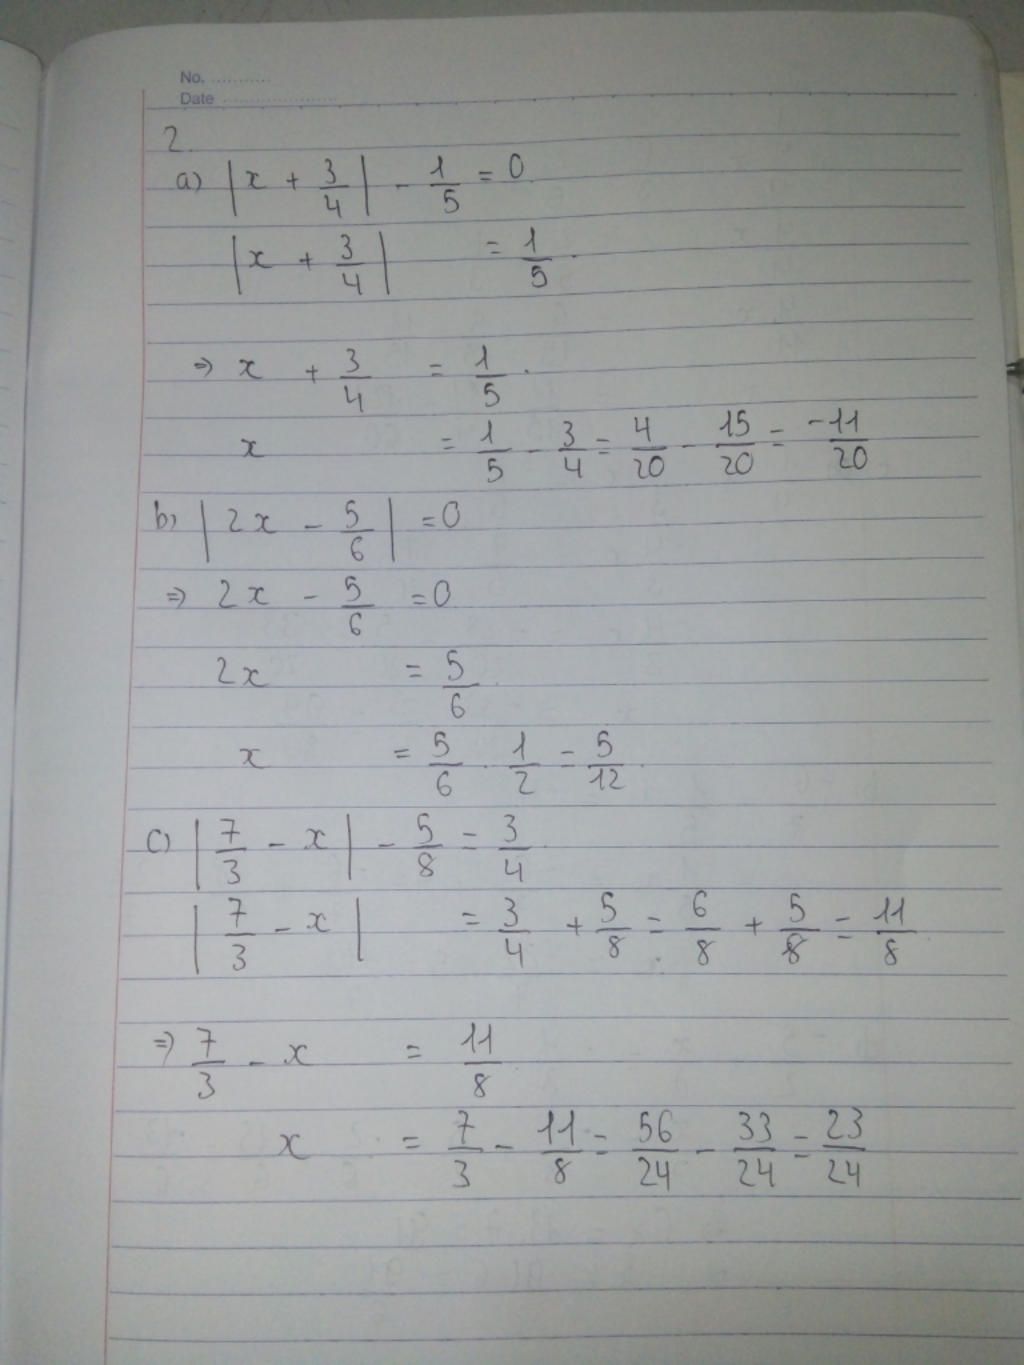 No. ............
Date ........................
2.
a) |x + 3/4| - 1/5 = 0
|x + 3/4| = 1/5.
=> x + 3/4 = 1/5.
x = 1/5 - 3/4 = 4/20 - 15/20 = -11/20
b) |2x - 5/6| = 0
=> 2x - 5/6 = 0
2x = 5/6
x = 5/6 . 1/2 = 5/12.
c) |7/3 - x| - 5/8 = 3/4
|7/3 - x| = 3/4 + 5/8 = 6/8 + 5/8 = 11/8
=> 7/3 - x = 11/8
x = 7/3 - 11/8 = 56/24 - 33/24 = 23/24